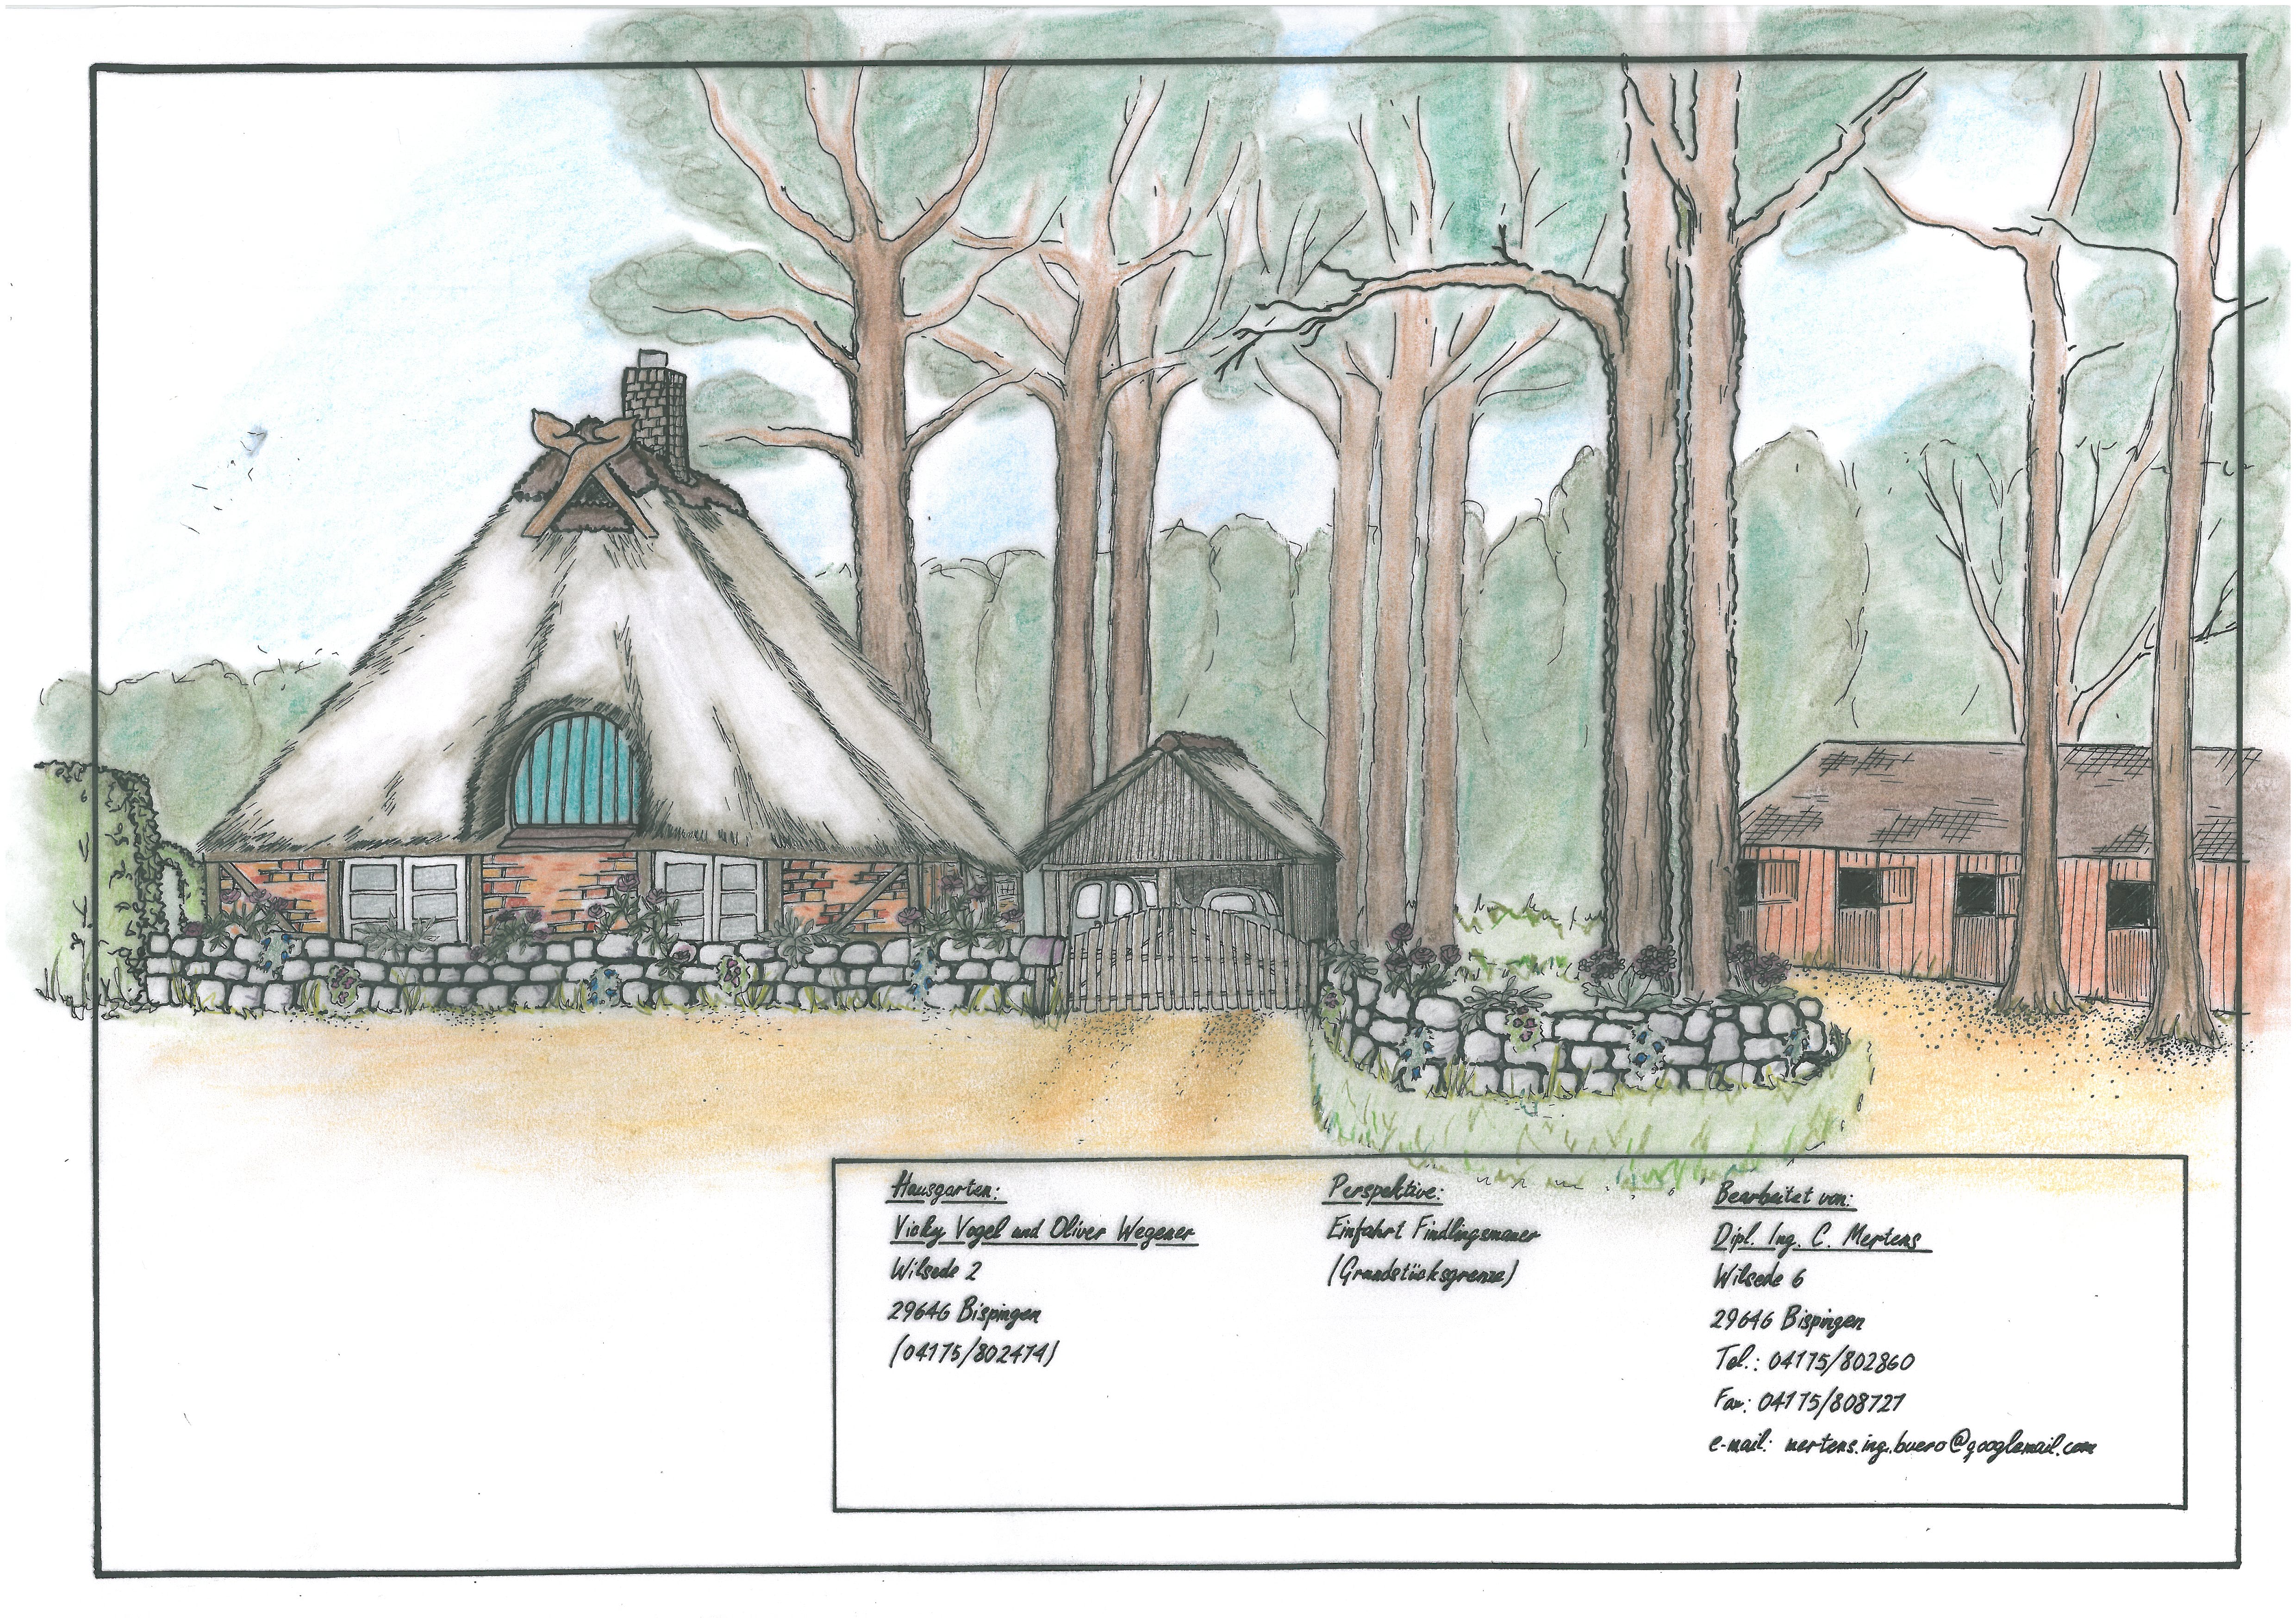 Hausgarten:
Vicky Vogel und Oliver Wegener
Wilsede 2
29646 Bispingen
(04175/802474)
Perspektive:
Einfahrt Findlingsmauer
(Grundstücksgrenze)
Bearbeitet von:
Dipl. Ing. C. Mertens
Wilsede 6
29646 Bispingen
Tel.: 04175/802860
Fax: 04175/808727
e-mail: mertens.ing.buero@googlemail.com